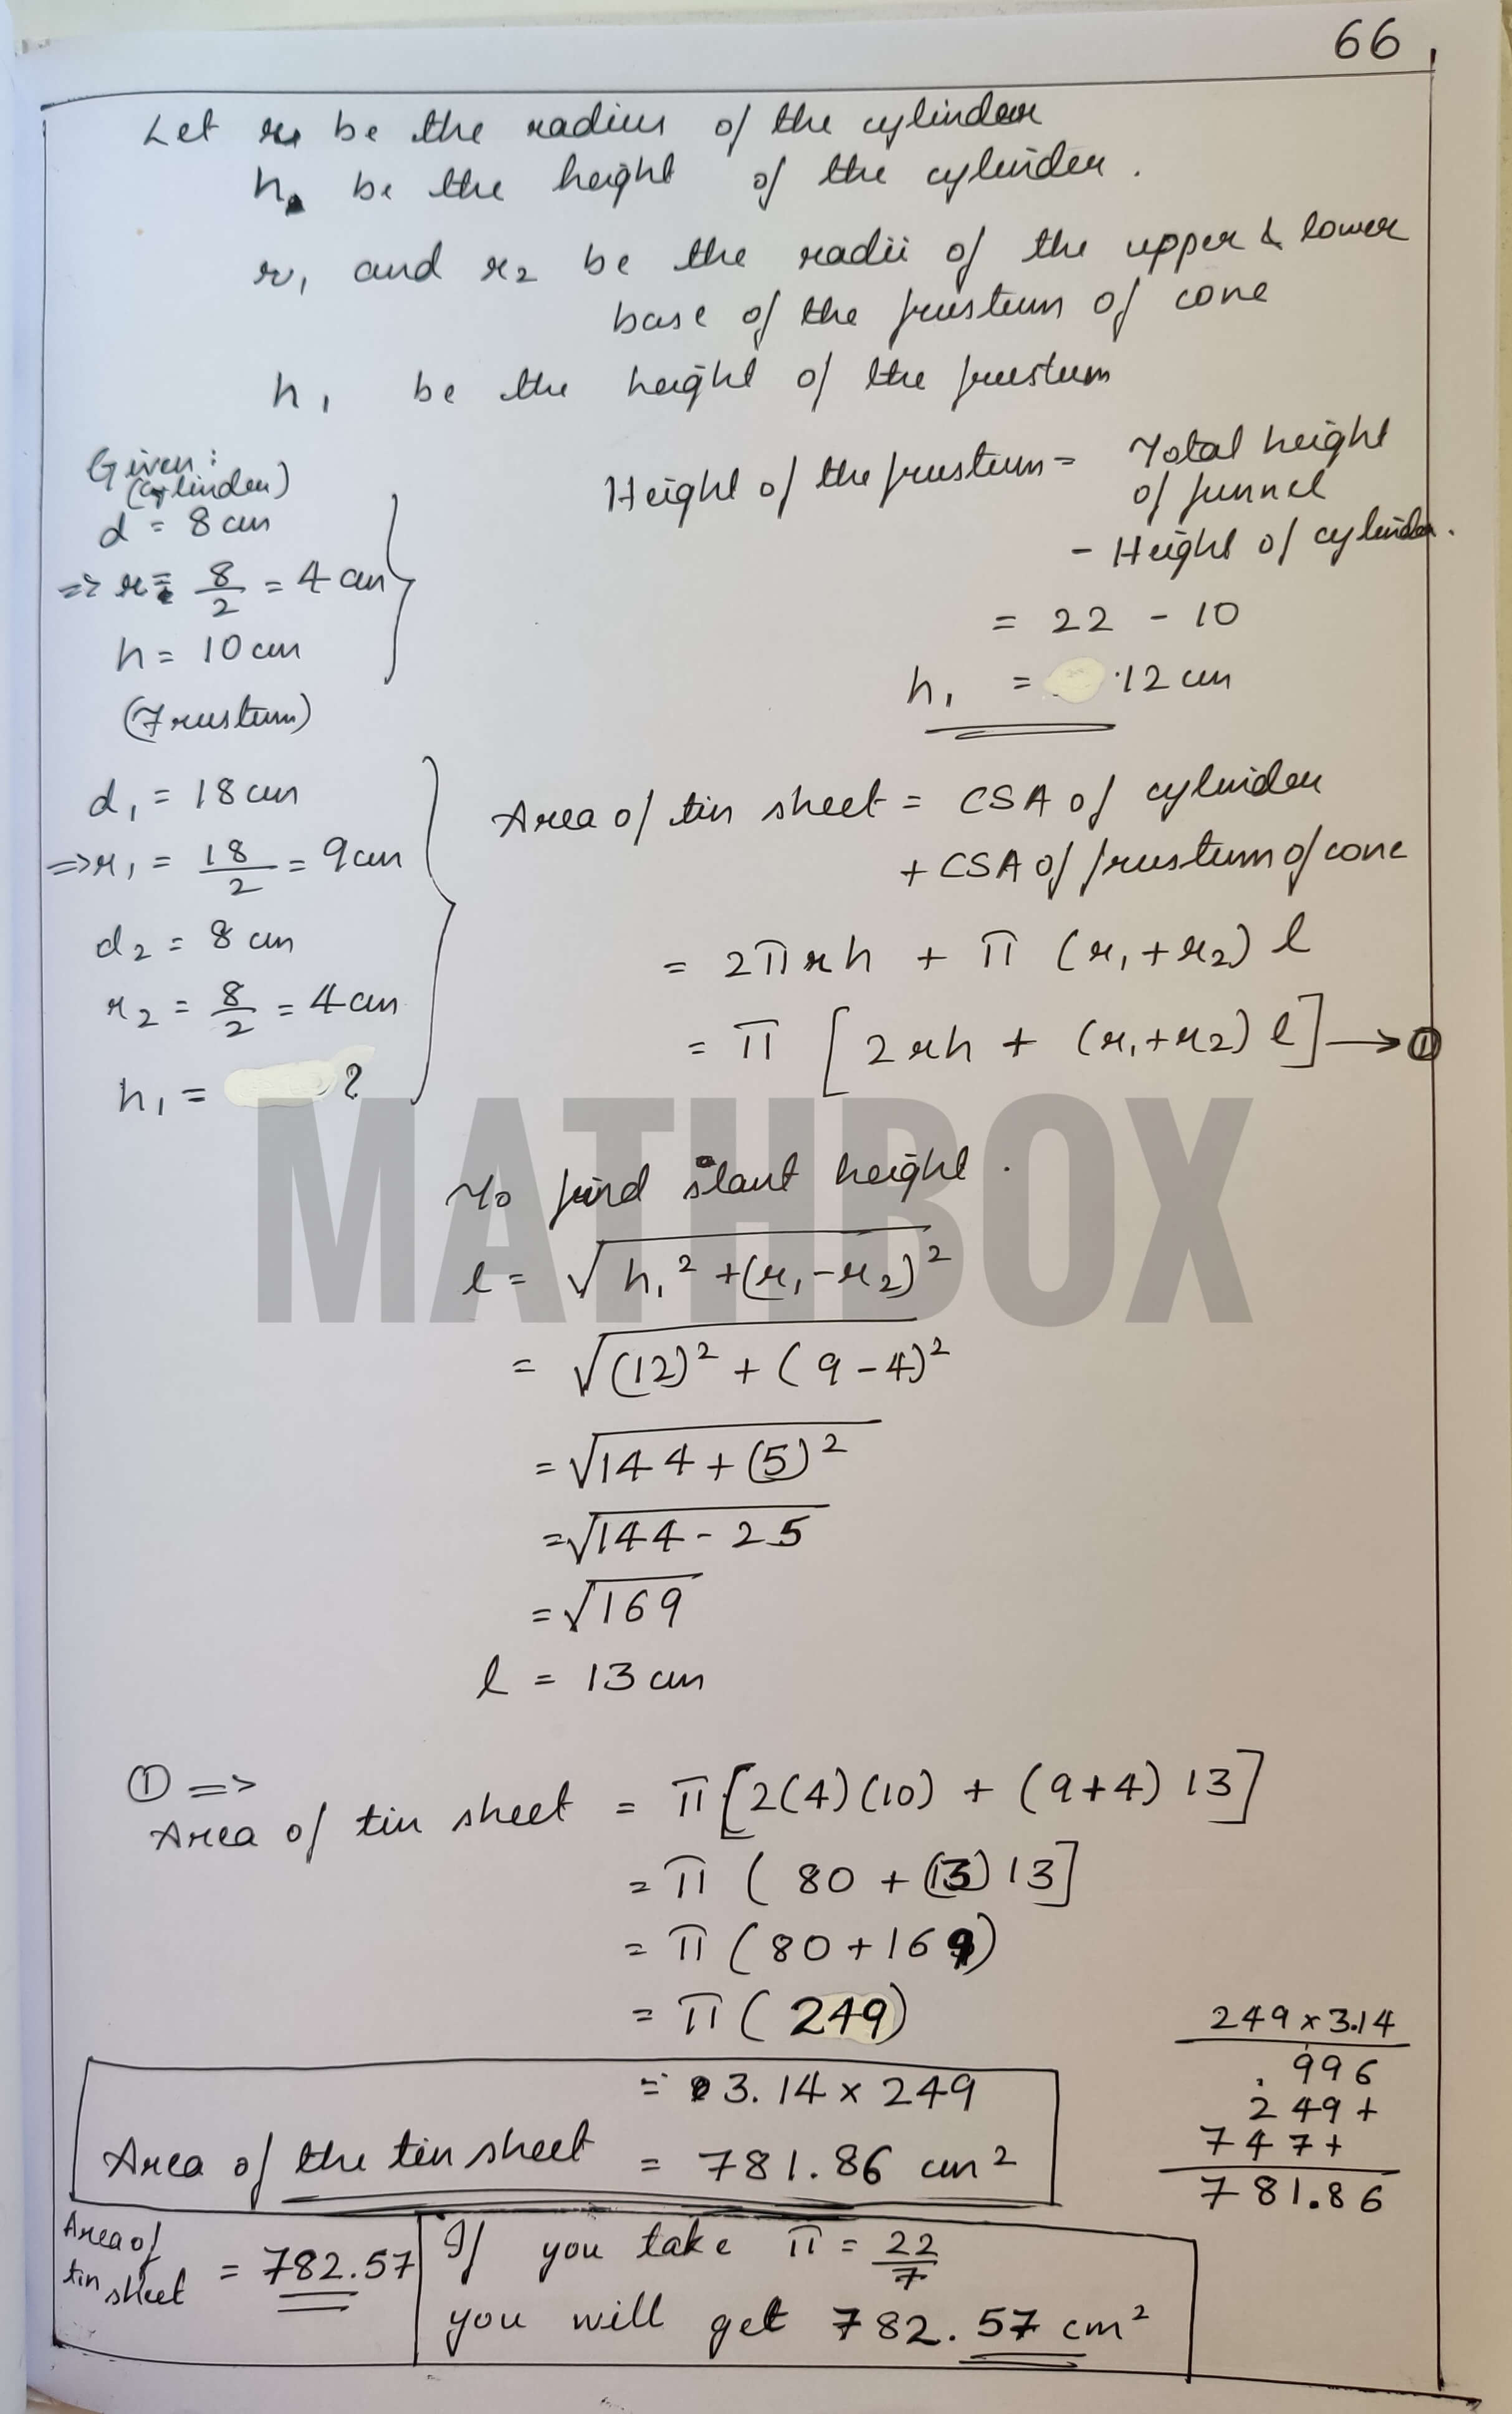 66
Let r be the radius of the cylinder
h be the height of the cylinder.
r₁ and r₂ be the radii of the upper & lower
base of the frustum of cone
h₁ be the height of the frustum
Given:
(cylinder)
d = 8 cm
=> r = 8/2 = 4 cm
h = 10 cm
(Frustum)
d₁ = 18 cm
=> r₁ = 18/2 = 9 cm
d₂ = 8 cm
r₂ = 8/2 = 4 cm
h₁ = ?
Height of the frustum = Total height
of funnel
- Height of cylinder.
= 22 - 10
h₁ = 12 cm
Area of tin sheet = CSA of cylinder
+ CSA of frustum of cone
= 2πrh + π (r₁+r₂) l
= π [2rh + (r₁+r₂) l] → ①
MATHBOX
To find slant height.
l = √h₁² + (r₁-r₂)²
= √(12)² + (9-4)²
= √144 + (5)²
= √144 - 25
= √169
l = 13 cm
① =>
Area of tin sheet = π[2(4)(10) + (9+4) 13]
= π ( 80 + (13) 13]
= π (80+169)
= π (249)
= 3.14 x 249
Area of the tin sheet = 781.86 cm²
249 x 3.14
996
249+
747+
781.86
Area of
tin sheet = 782.57
If you take π = 22/7
you will get 782.57 cm²